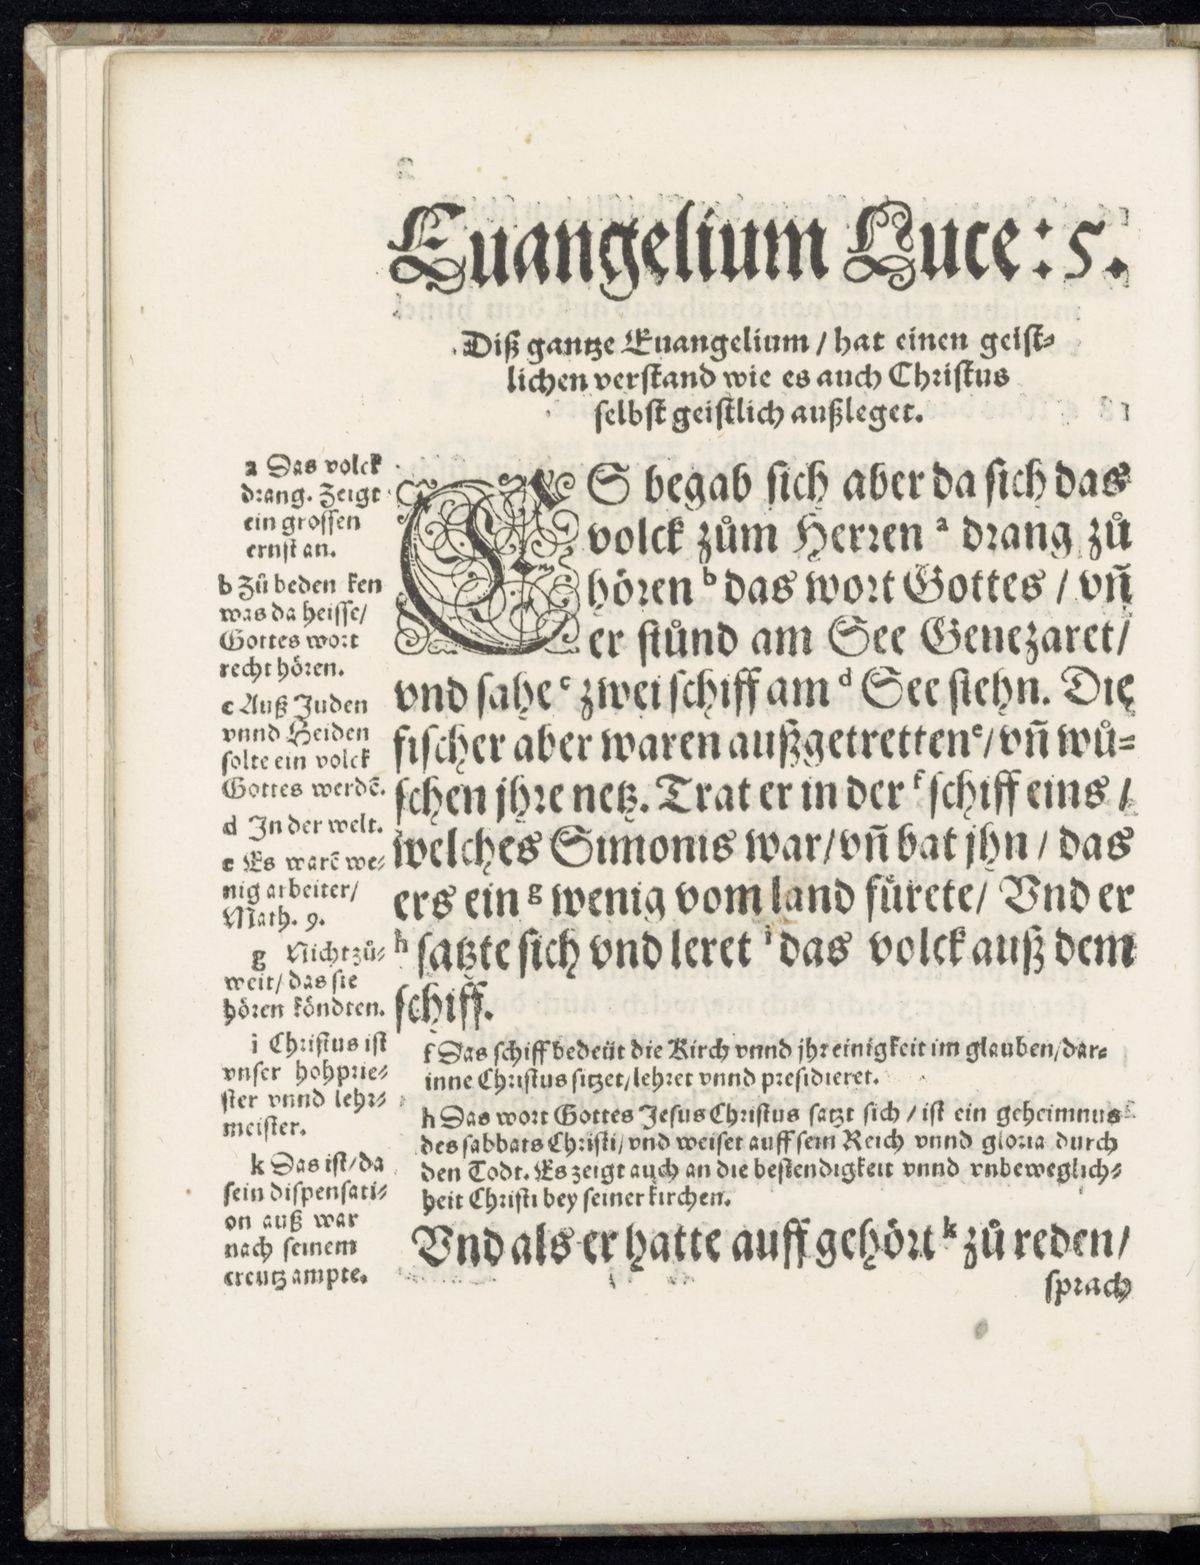 Euangelium Luce: 5.
Diß gantze Euangelium / hat einen geist⸗
lichen verstand wie es auch Christus
selbst geistlich außleget.
a Das volck
drang. Zeigt
ein grossen
ernst an.
b Zů beden ken
was da heisse/
Gottes wort
recht hören.
c Auß Juden
vnnd Heiden
solte ein volck
Gottes werdē.
d In der welt.
e Es warē we⸗
nig arbeiter/
Math. 9.
g Nicht zů⸗
weit/ das sie
hören köndten.
i Christus ist
vnser hohprie⸗
ster vnnd lehr⸗
meister.
k Das ist/ da
sein dispensati⸗
on auß war
nach seinem
creutz ampte.
ES begab sich aber da sich das
volck zům Herren a drang zů
hören b das wort Gottes / vñ
er stůnd am See Genezaret/
vnd sahe c zwei schiff am d See stehn. Die
fischer aber waren außgetretten e/ vñ wů⸗
schen jhre netz. Trat er in der f schiff eins /
welches Simonis war/ vñ bat jhn / das
ers ein g wenig vom land fůrete/ Vnd er
h satzte sich vnd leret i das volck auß dem
schiff.
f Das schiff bedeüt die Kirch vnnd jhr einigkeit im glauben/ dar⸗
inne Christus sitzet/ lehret vnnd presidieret.
h Das wort Gottes Jesus Christus satzt sich / ist ein geheimnus
des sabbats Christi/ vnd weiset auff sein Reich vnnd gloria durch
den Todt. Es zeigt auch an die bestendigkeit vnnd vnbeweglich⸗
heit Christi bey seiner kirchen.
Vnd als er hatte auff gehört k zů reden/
sprach